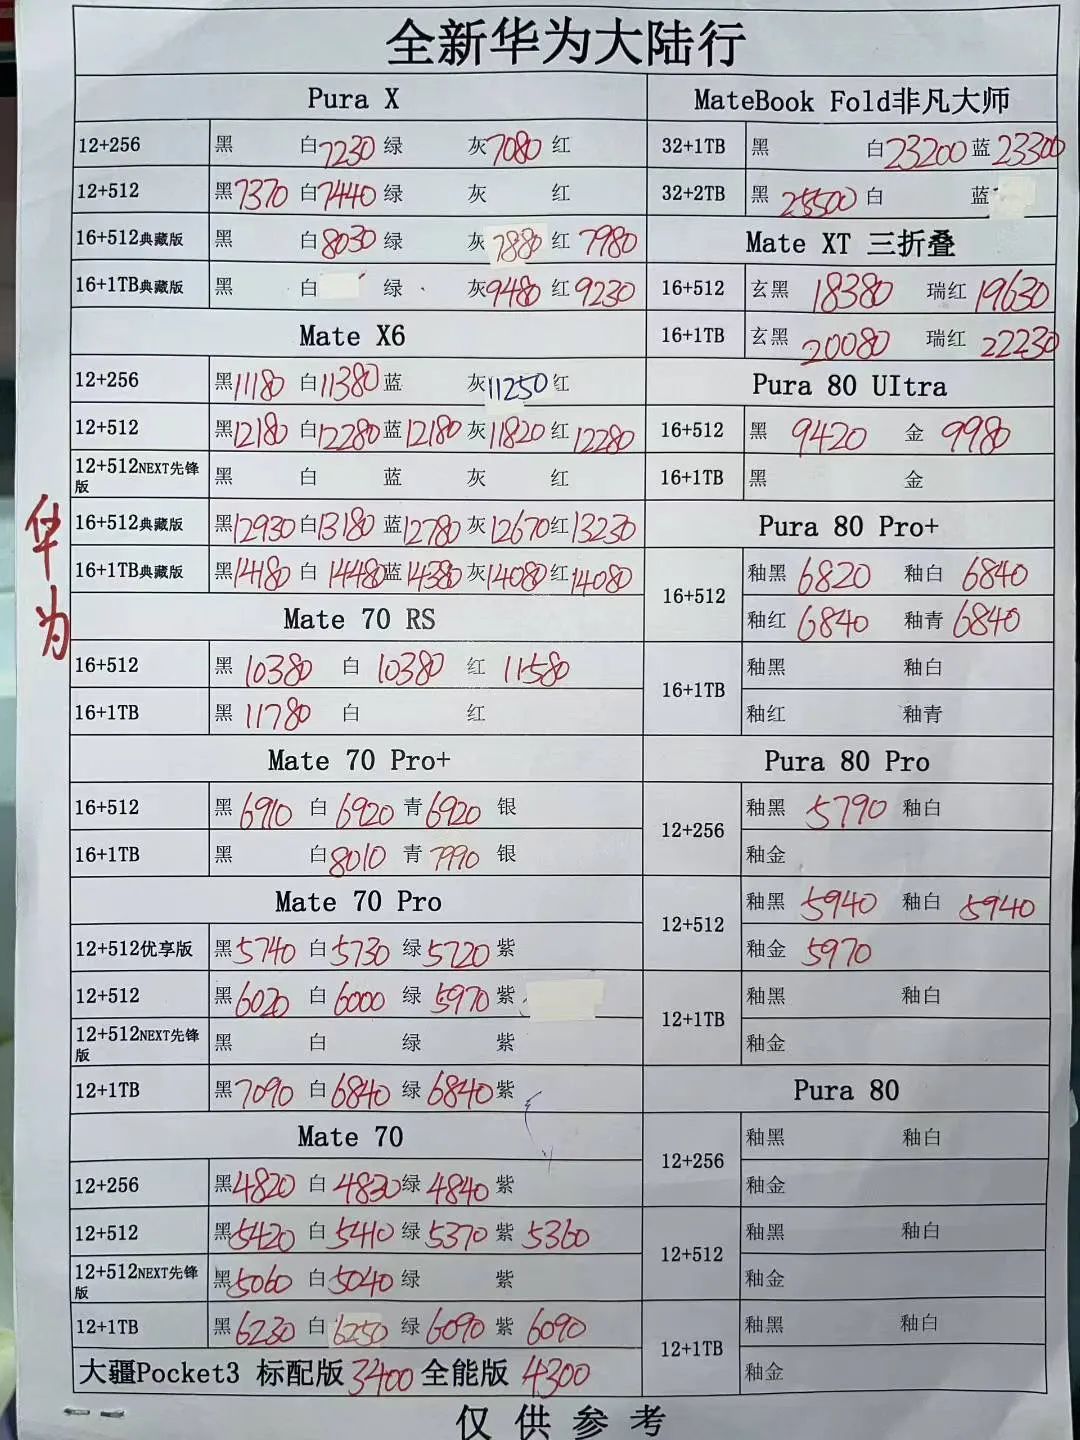 全新华为大陆行
Pura X
12+256 黑 白7230 绿 灰7080 红
12+512 黑7370 白7440 绿 灰 红
16+512典藏版 黑 白8030 绿 灰7880 红7980
16+1TB典藏版 黑 白 绿 灰9480 红9230
Mate X6
12+256 黑11180 白11380 蓝 灰11250 红
12+512 黑12180 白12280 蓝12180 灰11820 红12280
12+512NEXT先锋版 黑 白 蓝 灰 红
16+512典藏版 黑12930 白13180 蓝12780 灰12670 红13230
16+1TB典藏版 黑14180 白14480 蓝14380 灰14080 红14080
Mate 70 RS
16+512 黑10380 白10380 红11580
16+1TB 黑11780 白 红
Mate 70 Pro+
16+512 黑6910 白6920 青6920 银
16+1TB 黑 白8010 青7990 银
Mate 70 Pro
12+512优享版 黑5740 白5730 绿5720 紫
12+512 黑6020 白6000 绿5970 紫
12+512NEXT先锋版 黑 白 绿 紫
12+1TB 黑7090 白6840 绿6840 紫
Mate 70
12+256 黑4820 白4830 绿4840 紫
12+512 黑5420 白5410 绿5370 紫5360
12+512NEXT先锋版 黑5060 白5040 绿 紫
12+1TB 黑6230 白6250 绿6090 紫6090
大疆Pocket3 标配版3400 全能版4300
MateBook Fold非凡大师
32+1TB 黑 白23200 蓝23300
32+2TB 黑25500 白 蓝
Mate XT 三折叠
16+512 玄黑18380 瑞红19630
16+1TB 玄黑20080 瑞红22230
Pura 80 UItra
16+512 黑9420 金9980
16+1TB 黑 金
Pura 80 Pro+
16+512 釉黑6820 釉白6840
釉红6840 釉青6840
16+1TB 釉黑 釉白
釉红 釉青
Pura 80 Pro
12+256 釉黑5790 釉白
釉金
12+512 釉黑5940 釉白5940
釉金5970
12+1TB 釉黑 釉白
釉金
Pura 80
12+256 釉黑 釉白
釉金
12+512 釉黑 釉白
釉金
12+1TB 釉黑 釉白
釉金
华为
仅供参考